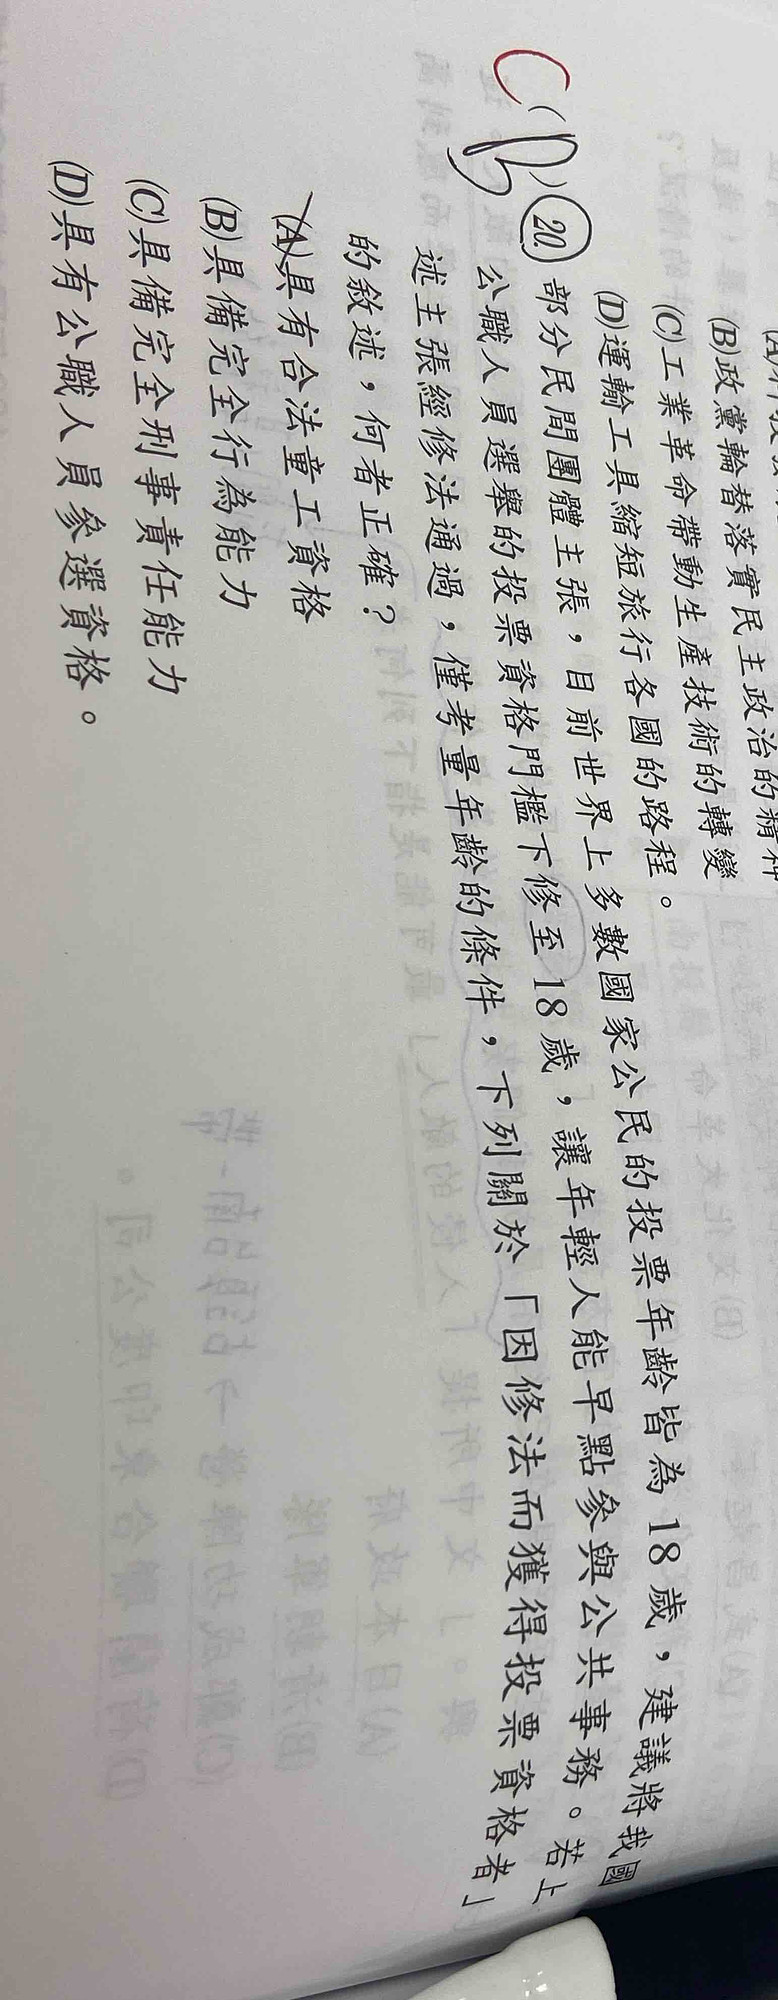 (B)政黨輪替落實民主政治的精神
(C)工業革命帶動生產技術的轉變
(D)運輸工具縮短旅行各國的路程。
C (B) 20 部分民間團體主張，目前世界上多數國家公民的投票年齡皆為18歲，建議將我國
公職人員選舉的投票資格門檻下修至18歲，讓年輕人能早點參與公共事務。若上
述主張經修法通過，僅考量年齡的條件，下列關於「因修法而獲得投票資格者」
的敘述，何者正確？
(A)具有合法童工資格
(B)具備完全行為能力
(C)具備完全刑事責任能力
(D)具有公職人員參選資格。